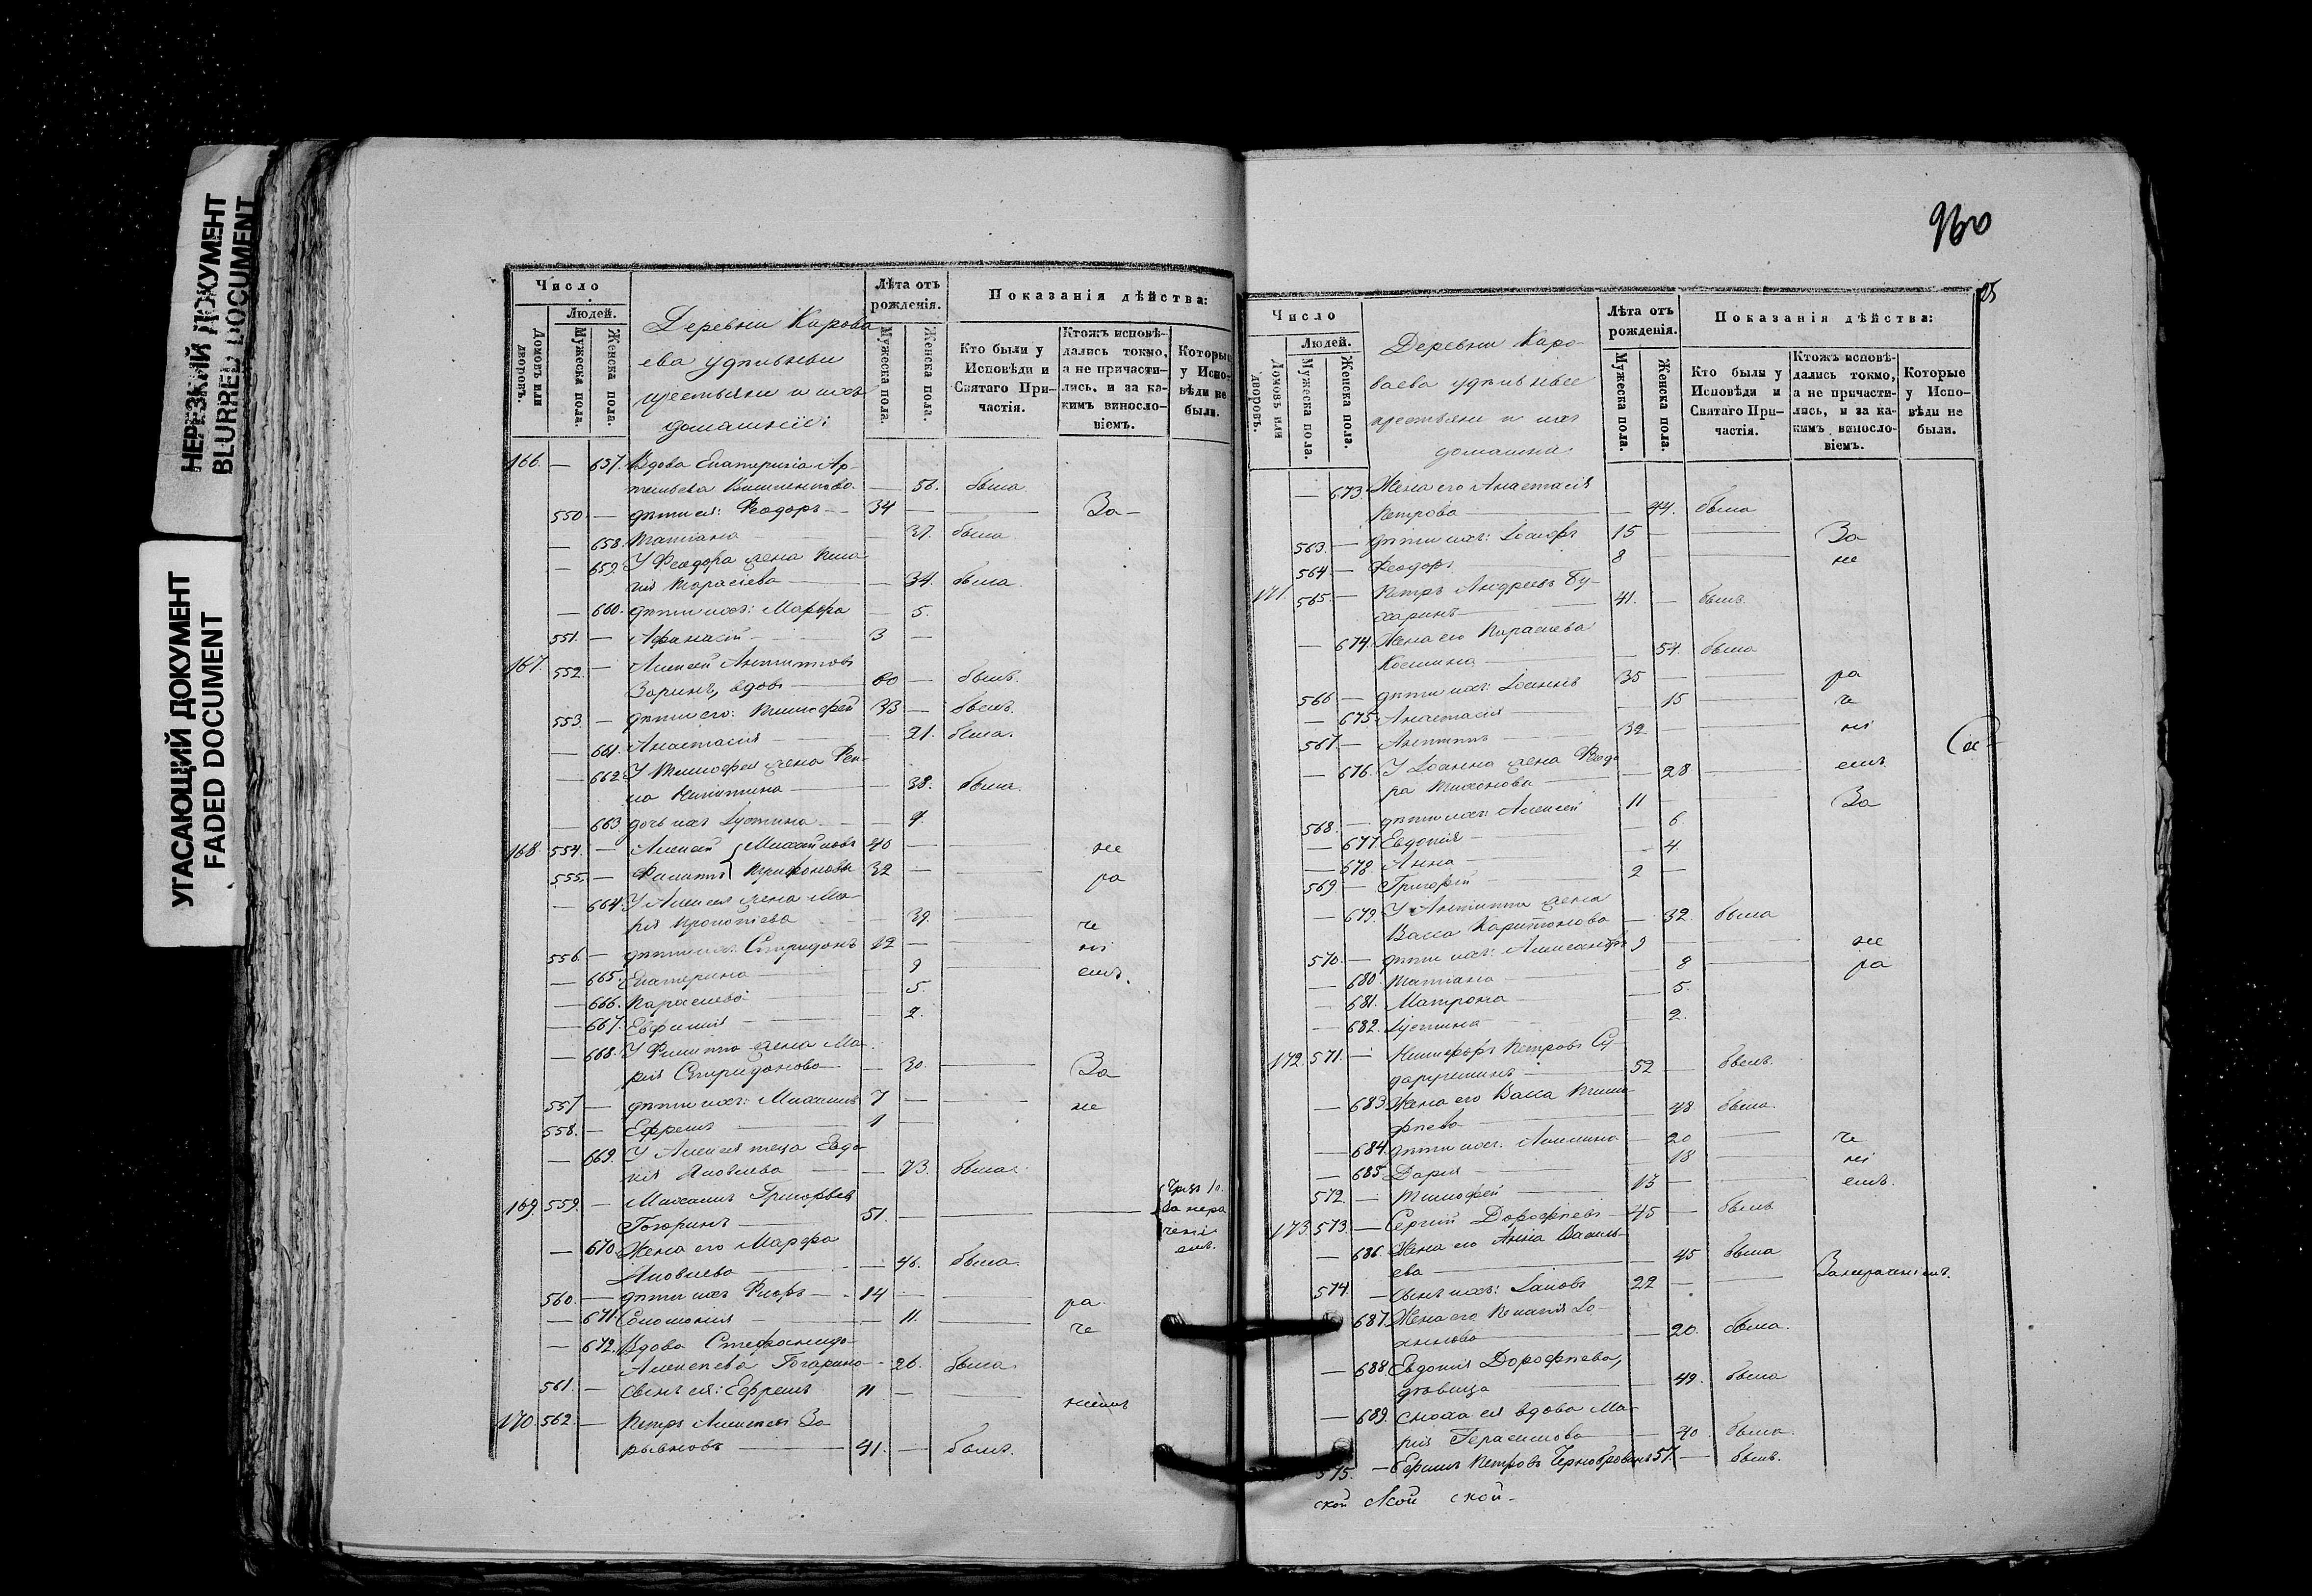 НЕРЕЗКИЙ ДОКУМЕНТ
BLURRED DOCUMENT
УГАСАЮЩИЙ ДОКУМЕНТ
FADED DOCUMENT
Число
Людей.
Домовъ или дворовъ.
Мужеска пола.
Женска пола.
Деревни Карова
ева удѣльныи
крестьяни и ихъ
домашніи:
Лѣта отъ
рожденія.
Мужеска пола.
Женска пола.
Показанія дѣйства:
Кто были у
Исповѣди и
Святаго При-
частія.
Ктожъ исповѣ-
дались токмо,
а не причасти-
лись, и за ка-
кимъ винносло-
віемъ.
Которые
у Испо-
вѣди не
были.
166. — 657. Вдова Екатерина Ар-
темьева — 56. была
550. — дѣти ея: Феодоръ — 34 — За-
— 658. Татіана — 37. была
— 659. У Феодора жена
Тарасіева — 34. была
— 660. дѣти ихъ: Марфа — 5.
551. — Афанасій — 3 —
167. 552. — Алексей Антиповъ
Заринъ, вдовъ — 60 — былъ.
553. — дѣти его: Тимофей 33 — былъ.
— 661. Анастасія — 21. была.
— 662 У Тимофея жена Фек-
ла Никитина — 38. была.
— 663 дочь ихъ Іустина — 9.
168. 554. — Алексей Михайловъ 40 — не
555. — Филиппъ Трифоновы 32 — ра
— 664. У Алексея жена Ма-
рія Прокопіева — 39. че
556. — дѣти ихъ: Спиридонъ 12 — ні
— 665. Екатерина — 9 емъ.
— 666. Параскева — 5.
— 667. Евфимія — 2.
— 668. У Филиппа жена Ма-
рія Спиридонова — 30. За
557 — дѣти ихъ: Михаилъ 7 — не
558. — Ефремъ — 1
— 669. У Алексея теща Евдо-
кія Яковлева — 73. была.
169. 559. — Михаилъ Григорьевъ
Гогаринъ — 51. —
За нера
чені
емъ.
— 670. Жена его Марфа
Яковлева — 46. была.
560. — дѣти ихъ Флоръ — 14 — ра
— 671. Соломонія — 11. че
— 672. Вдова Стефанида
Алексѣева Гогарина — 26. была.
561. — сынъ ея: Ефремъ 11 — ніемъ
170. 562. — Петръ Алексеевъ За
рывновъ — 41. — былъ.
960
Число
Людей.
Домовъ или дворовъ.
Мужеска пола.
Женска пола.
Деревни Каро-
ваева удѣльные
крестьяни и ихъ
домашни
Лѣта отъ
рожденія.
Мужеска пола.
Женска пола.
Показанія дѣйства:
Кто были у
Исповѣди и
Святаго При-
частія.
Ктожъ исповѣ-
дались токмо,
а не причасти-
лись, и за ка-
кимъ винносло-
віемъ.
Которые
у Испо-
вѣди не
были.
— 673. Жена его Анастасія
Петрова — 44. была
563. — дѣти ихъ: Іосифъ 15 — За
564 — Феодоръ — 8 не
171. 565. — Петръ Андреевъ Бу-
харинъ — 41. — былъ.
— 674. Жена его Параскева
Космина — 54. была
566 — дѣти ихъ: Іоаннъ 35 — ра
— 675 Анастасія — 15 — че
567 — Антипъ — 32 ні
— 676. У Іоанна жена Феодо
ра Тихонова — 28 емъ
568. — дѣти ихъ Алексей 11 — За
— 677 Евдокія — 6
— 678. Анна — 4.
569 — Григорій — 2 —
— 679. У Антипа жена
Васса Харитонова — 32. была
570. — дѣти ихъ: Александръ 9 не
— 680 Татіана — 8 ра
— 681. Матрона — 5.
— 682. Іустина — 2.
172. 571. — Никифоръ Петровъ Су-
52 былъ.
— 683 Жена его Васса Тимо
фѣева — 48 была.
— 684. дѣти ихъ: Акилина — 20 че
— 685. Дарія — 18 — ні
572. — Тимофей — 13 емъ.
173. 573. — Сергій Дорофѣевъ 45 — былъ
— 686. Жена его Анна Василь-
ева — 45 была
574. — сынъ ихъ: Іаковъ 22 — Занераченіемъ.
687. Жена его Іо-
аннова — 20. была.
— 688 Евдокія Дорофѣева,
дѣвица — 49. была
— 689. сноха ея вдова Ма-
рія Герасимова — 40 была.
575. — Ефимъ Петровъ Чернобровинъ 57. — былъ.